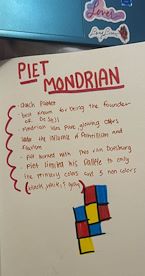 Lover
PIET
MONDRIAN
- Dutch Painter
- best known for being the founder
of De Stijl
- Mondrian uses pure, glowing colors
under the influence of Pointillism and
Fauvism
- Piet worked with Theo van Doesburg
- Piet limited his pallete to only
the primary colors and 3 non colors
(black, white, & gray)